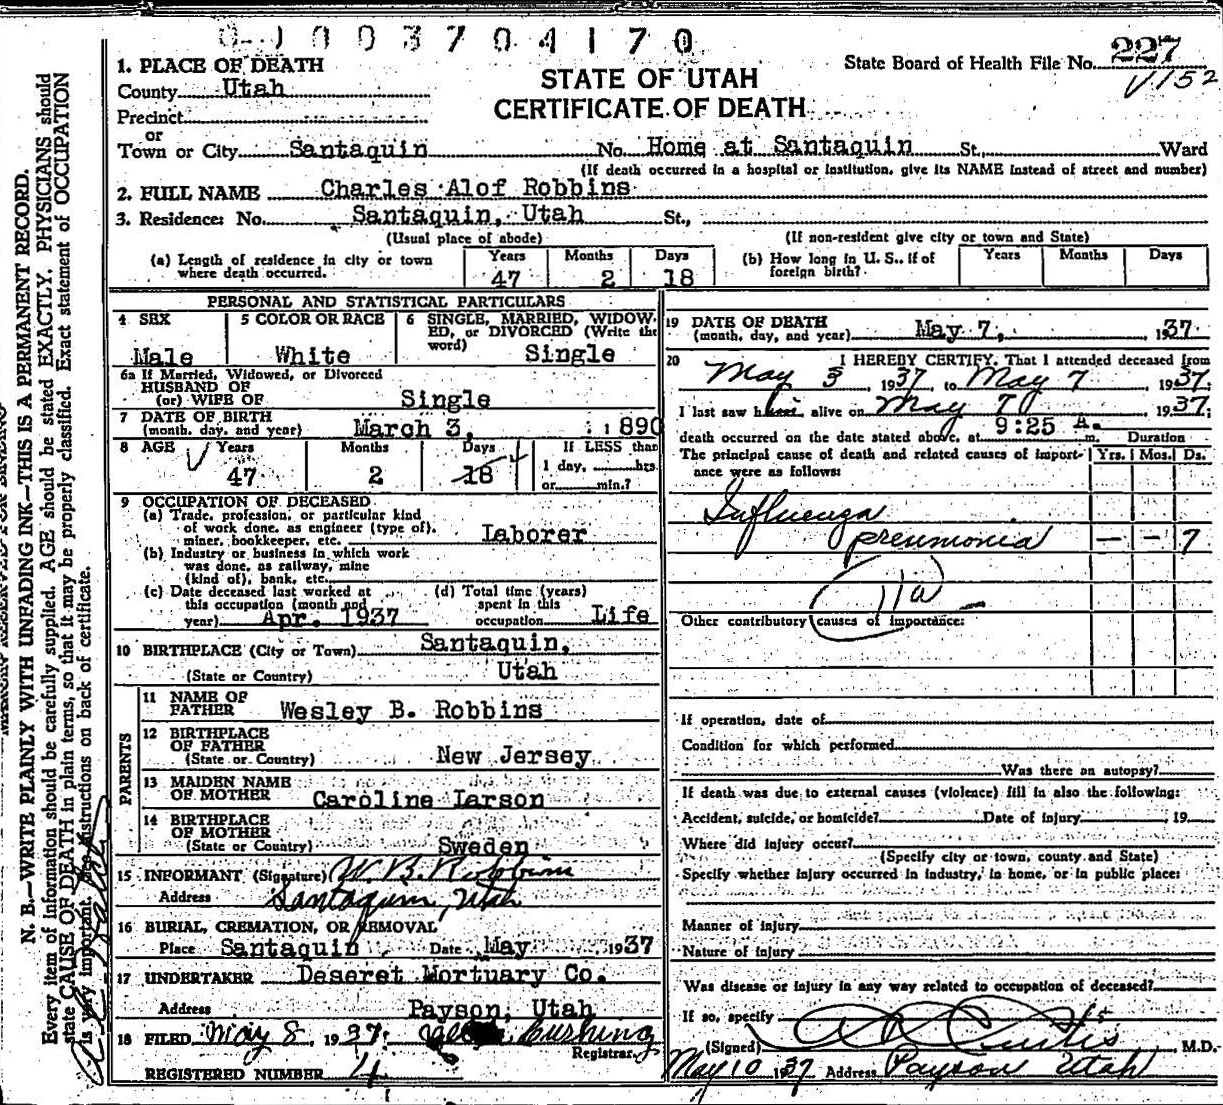 0 0 0 3 7 0 4 1 7 0
State Board of Health File No. 227
V152
STATE OF UTAH
CERTIFICATE OF DEATH
1. PLACE OF DEATH
County Utah
Precinct
or
Town or City Santaquin No. Home at Santaquin St., Ward
(If death occurred in a hospital or institution, give its NAME instead of street and number)
2. FULL NAME Charles Alof Robbins
3. Residence: No. Santaquin, Utah St.,
(Usual place of abode) (If non-resident give city or town and State)
(a) Length of residence in city or town where death occurred. Years 47 Months 2 Days 18
(b) How long in U. S., if of foreign birth? Years Months Days
PERSONAL AND STATISTICAL PARTICULARS
4 SEX Male
5 COLOR OR RACE White
6 SINGLE, MARRIED, WIDOWED, or DIVORCED (Write the word) Single
6a If Married, Widowed, or Divorced
HUSBAND OF
(or) WIFE OF Single
7 DATE OF BIRTH
(month, day, and year) March 3, 1890
8 AGE Years 47 Months 2 Days 18 4
If LESS than
1 day, hrs.
or min.?
9 OCCUPATION OF DECEASED
(a) Trade, profession, or particular kind
of work done, as engineer (type of),
miner, bookkeeper, etc. Laborer
(b) Industry or business in which work
was done, as railway, mine
(kind of), bank, etc.
(c) Date deceased last worked at
this occupation (month and
year) Apr. 1937
(d) Total time (years)
spent in this
occupation Life
10 BIRTHPLACE (City or Town) Santaquin,
(State or Country) Utah
PARENTS
11 NAME OF
FATHER Wesley B. Robbins
12 BIRTHPLACE
OF FATHER
(State or Country) New Jersey
13 MAIDEN NAME
OF MOTHER Caroline Larson
14 BIRTHPLACE
OF MOTHER
(State or Country) Sweden
15 INFORMANT (Signature) W. B. Robbins
Address Santaquin, Utah
16 BURIAL, CREMATION, OR REMOVAL
Place Santaquin Date May 1937
17 UNDERTAKER Deseret Mortuary Co.
Address Payson, Utah
18 FILED May 8, 1937. Cushing
Registrar.
REGISTERED NUMBER 4
19 DATE OF DEATH
(month, day, and year) May 7, 1937
20 I HEREBY CERTIFY, That I attended deceased from
May 3, 1937, to May 7 1937.
I last saw him alive on May 7 1937;
death occurred on the date stated above, at 9:25 A. m. Duration
The principal cause of death and related causes of importance were as follows: Yrs. Mos. Ds.
Influenza
pneumonia — — 7
11a
Other contributory causes of importance:
If operation, date of
Condition for which performed
Was there an autopsy?
If death was due to external causes (violence) fill in also the following:
Accident, suicide, or homicide? Date of injury 19
Where did injury occur?
(Specify city or town, county and State)
Specify whether injury occurred in industry, in home, or in public place:
Manner of injury
Nature of injury
Was disease or injury in any way related to occupation of deceased?
If so, specify
(Signed) Curtis, M.D.
May 10 1937 Address Payson Utah
N. B.—WRITE PLAINLY WITH UNFADING INK—THIS IS A PERMANENT RECORD.
Every item of information should be carefully supplied. AGE should be stated EXACTLY. PHYSICIANS should
state CAUSE OF DEATH in plain terms, so that it may be properly classified. Exact statement of OCCUPATION
is very important. See instructions on back of certificate.